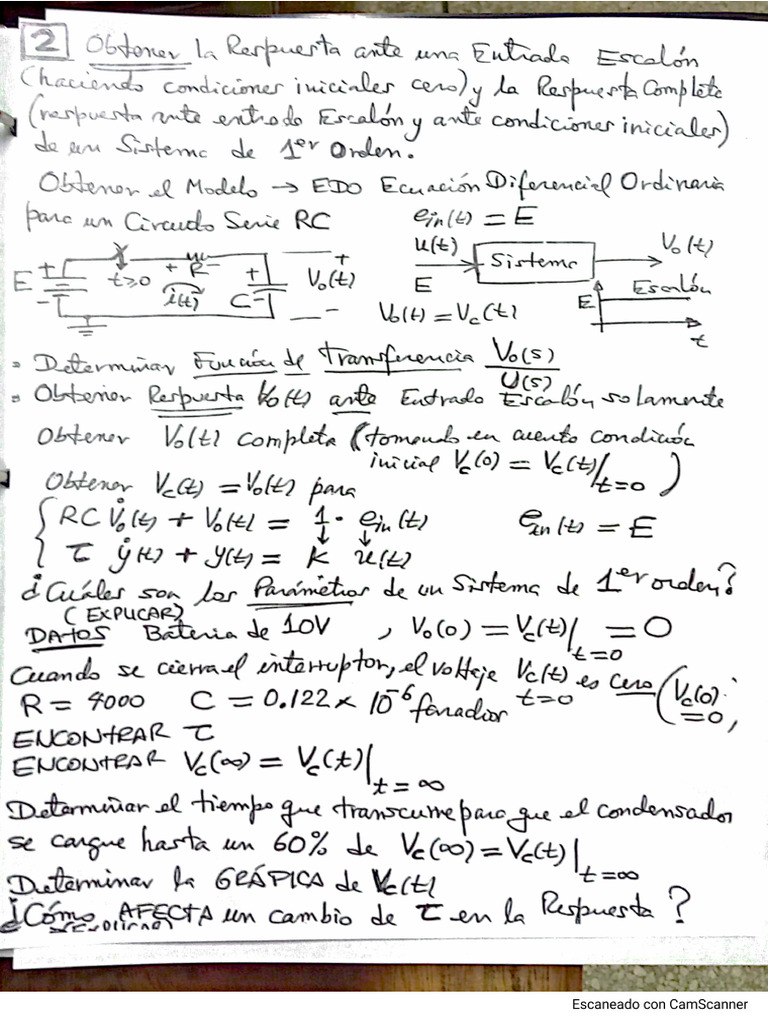 2 Obtener la Respuesta ante una Entrada Escalón
(haciendo condiciones iniciales cero) y la Respuesta Completa
(respuesta ante entrada Escalón y ante condiciones iniciales)
de un Sistema de 1er Orden.
Obtener el Modelo → EDO Ecuación Diferencial Ordinaria
para un Circuito Serie RC ein(t) = E
E + - t≥0 + R - i(t) + C - + Vo(t) -
u(t) E Sistema Vo(t)
Vo(t) = Vc(t) E Escalón t
Determinar Función de transferencia Vo(s)/U(s)
Obtener Respuesta Vo(t) ante Entrada Escalón solamente
Obtener Vo(t) completa (tomando en cuenta condición
inicial Vc(0) = Vc(t)|t=0)
Obtener Vc(t) = Vo(t) para
{ RC V̇o(t) + Vo(t) = 1 · ein(t) ein(t) = E
τ ẏ(t) + y(t) = K u(t)
¿Cuáles son los Parámetros de un Sistema de 1er orden?
(EXPLICAR)
DATOS Bateria de 10V , Vo(0) = Vc(t)|t=0 = 0
Cuando se cierra el interruptor, el voltaje Vc(t) t=0 es cero (Vc(0) = 0,
R = 4000 C = 0.122 x 10^-6 faradior
ENCONTRAR τ
ENCONTRAR Vc(∞) = Vc(t)|t=∞
Determinar el tiempo que transcurre para que el condensador
se cargue hasta un 60% de Vc(∞) = Vc(t)|t=∞
Determinar la GRÁFICA de Vc(t)
¿Cómo AFECTA un cambio de τ en la Respuesta?
Escaneado con CamScanner